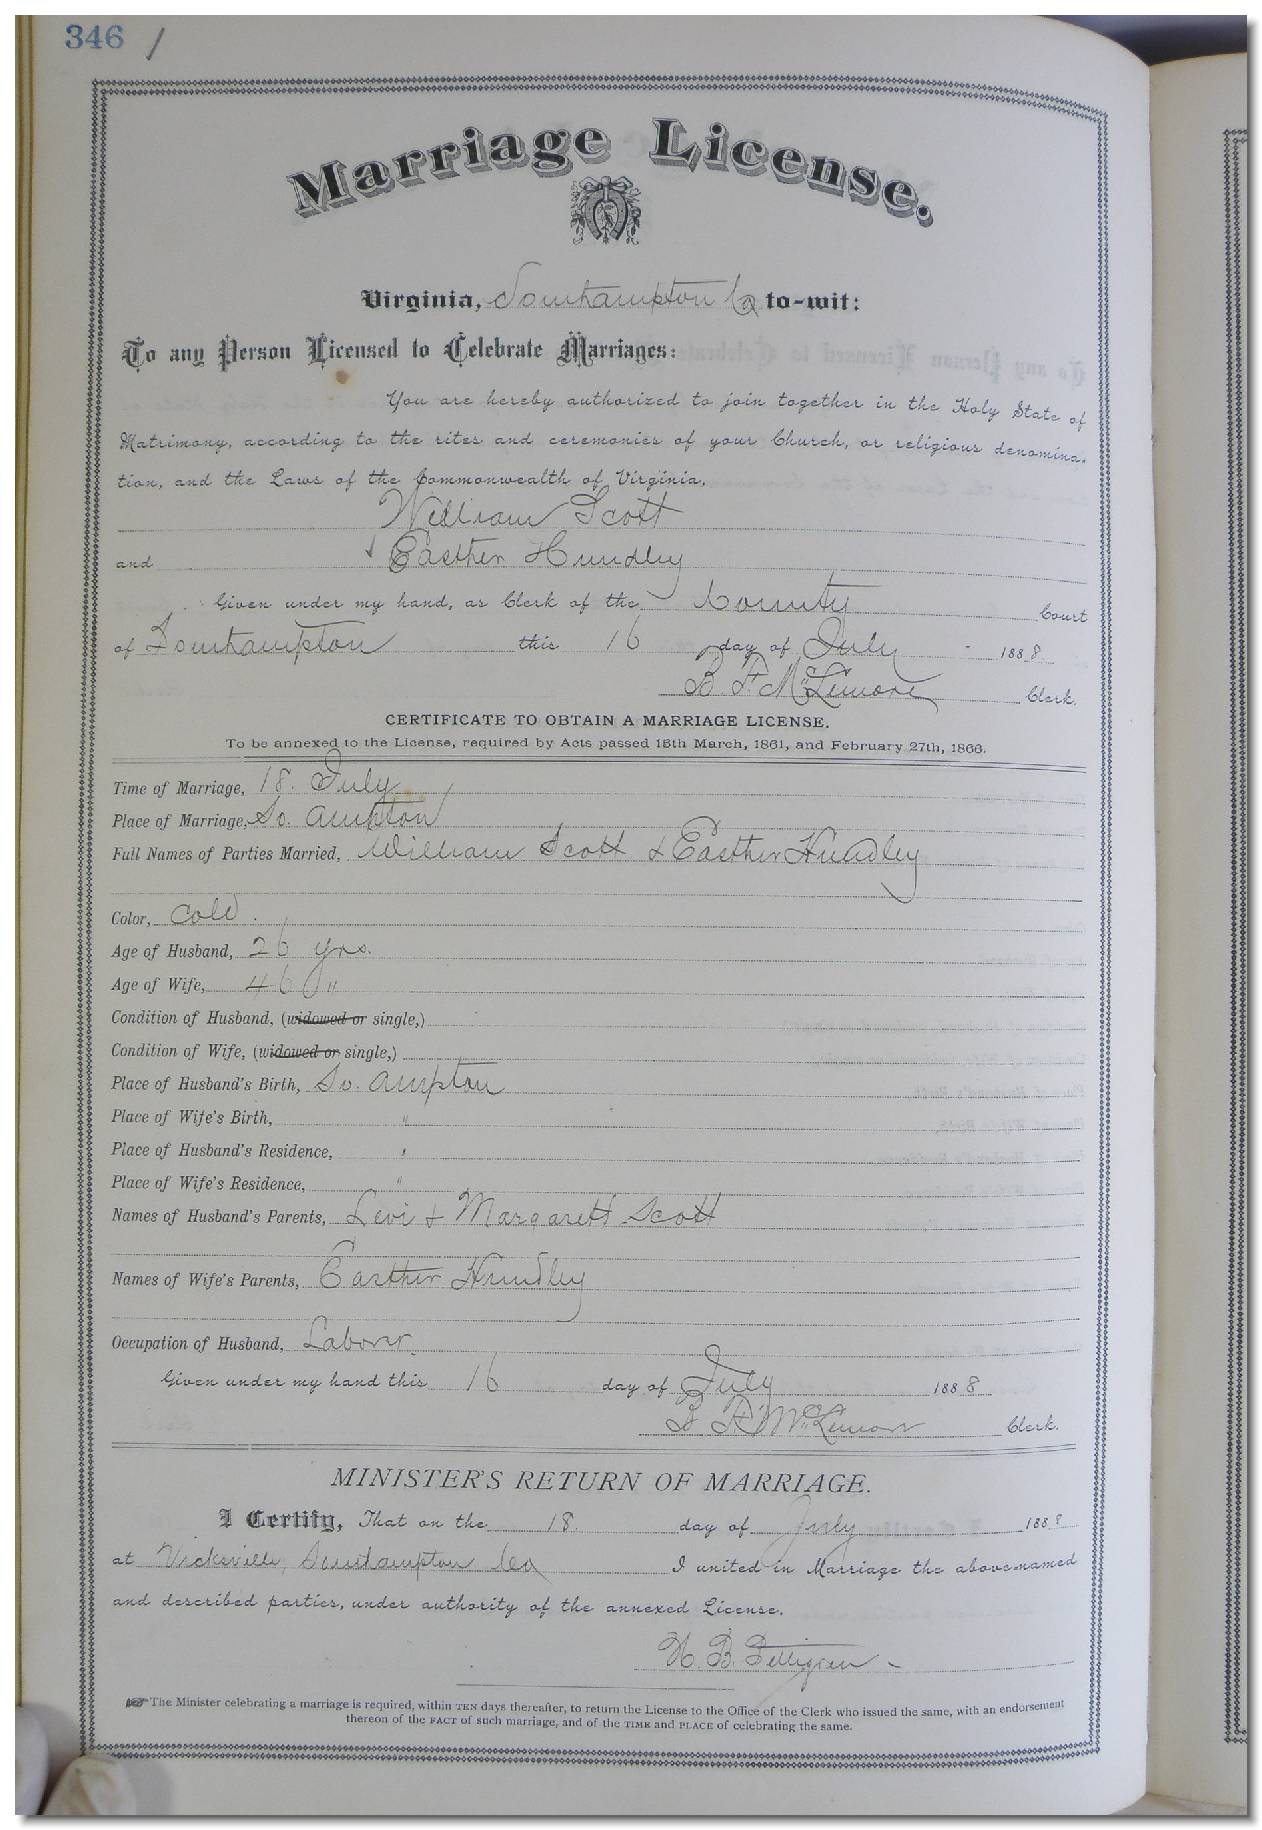 346 /
Marriage License.
Virginia, Southampton Co to-wit:
To any Person Licensed to Celebrate Marriages:
You are hereby authorized to join together in the Holy State of
Matrimony, according to the rites and ceremonies of your Church, or religious denomina-
tion, and the Laws of the Commonwealth of Virginia,
William Scott
and Easther Hundley
Given under my hand, as Clerk of the County Court
of Southampton this 16 day of July 1888
B. F. McLemore Clerk.
CERTIFICATE TO OBTAIN A MARRIAGE LICENSE.
To be annexed to the License, required by Acts passed 15th March, 1861, and February 27th, 1866.
Time of Marriage, 18. July
Place of Marriage, So. ampton
Full Names of Parties Married, William Scott & Easther Hundley
Color, Cold.
Age of Husband, 26 yrs.
Age of Wife, 46 "
Condition of Husband, (widowed or single,)
Condition of Wife, (widowed or single,)
Place of Husband's Birth, So. ampton
Place of Wife's Birth, "
Place of Husband's Residence, "
Place of Wife's Residence, "
Names of Husband's Parents, Levi & Margarett Scott
Names of Wife's Parents, Easther Hundley
Occupation of Husband, Laborer.
Given under my hand this 16 day of July 1888
B. F. McLemore Clerk.
MINISTER'S RETURN OF MARRIAGE.
I Certify, That on the 18. day of July 1888
at Vicksville, Southampton Co I united in Marriage the above-named
and described parties, under authority of the annexed License.
The Minister celebrating a marriage is required, within TEN days thereafter, to return the License to the Office of the Clerk who issued the same, with an endorsement
thereon of the FACT of such marriage, and of the TIME and PLACE of celebrating the same.